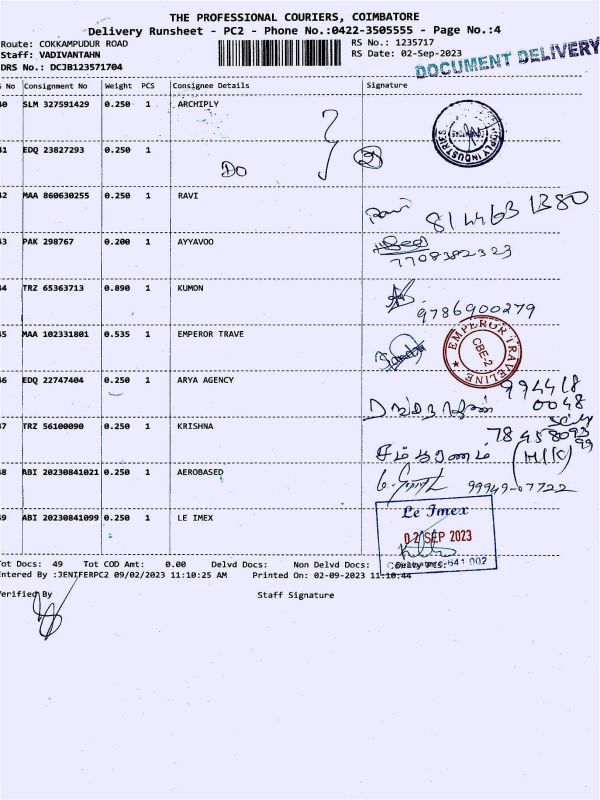 THE PROFESSIONAL COURIERS, COIMBATORE
Delivery Runsheet - PC2 - Phone No.:0422-3505555 - Page No.:4
Route: COKKAMPUDUR ROAD
RS No.: 1235717
Staff: VADIVANTAHN
RS Date: 02-Sep-2023
DRS No.: DCJB123571704
DOCUMENT DELIVERY
No Consignment No Weight PCS Consignee Details Signature
40 SLM 327591429 0.250 1 ARCHIPLY
41 EDQ 23827293 0.250 1
DO
42 MAA 860630255 0.250 1 RAVI
Ravi 8144631380
43 PAK 298767 0.200 1 AYYAVOO
7708382323
44 TRZ 65363713 0.890 1 KUMON
9786900279
45 MAA 102331801 0.535 1 EMPEROR TRAVE
EMPEROR TRAVELINE CBE-2
46 EDQ 22747404 0.250 1 ARYA AGENCY
994418
0048
47 TRZ 56100090 0.250 1 KRISHNA
48 ABI 20230841021 0.250 1 AEROBASED
99949-07722
49 ABI 20230841099 0.250 1 LE IMEX
Le Imex
02 SEP 2023
641 002
Tot Docs: 49 Tot COD Amt: 0.00 Delvd Docs: Non Delvd Docs:
Entered By :JENIFERPC2 09/02/2023 11:10:25 AM Printed On: 02-09-2023 11:10:44
Verified By Staff Signature